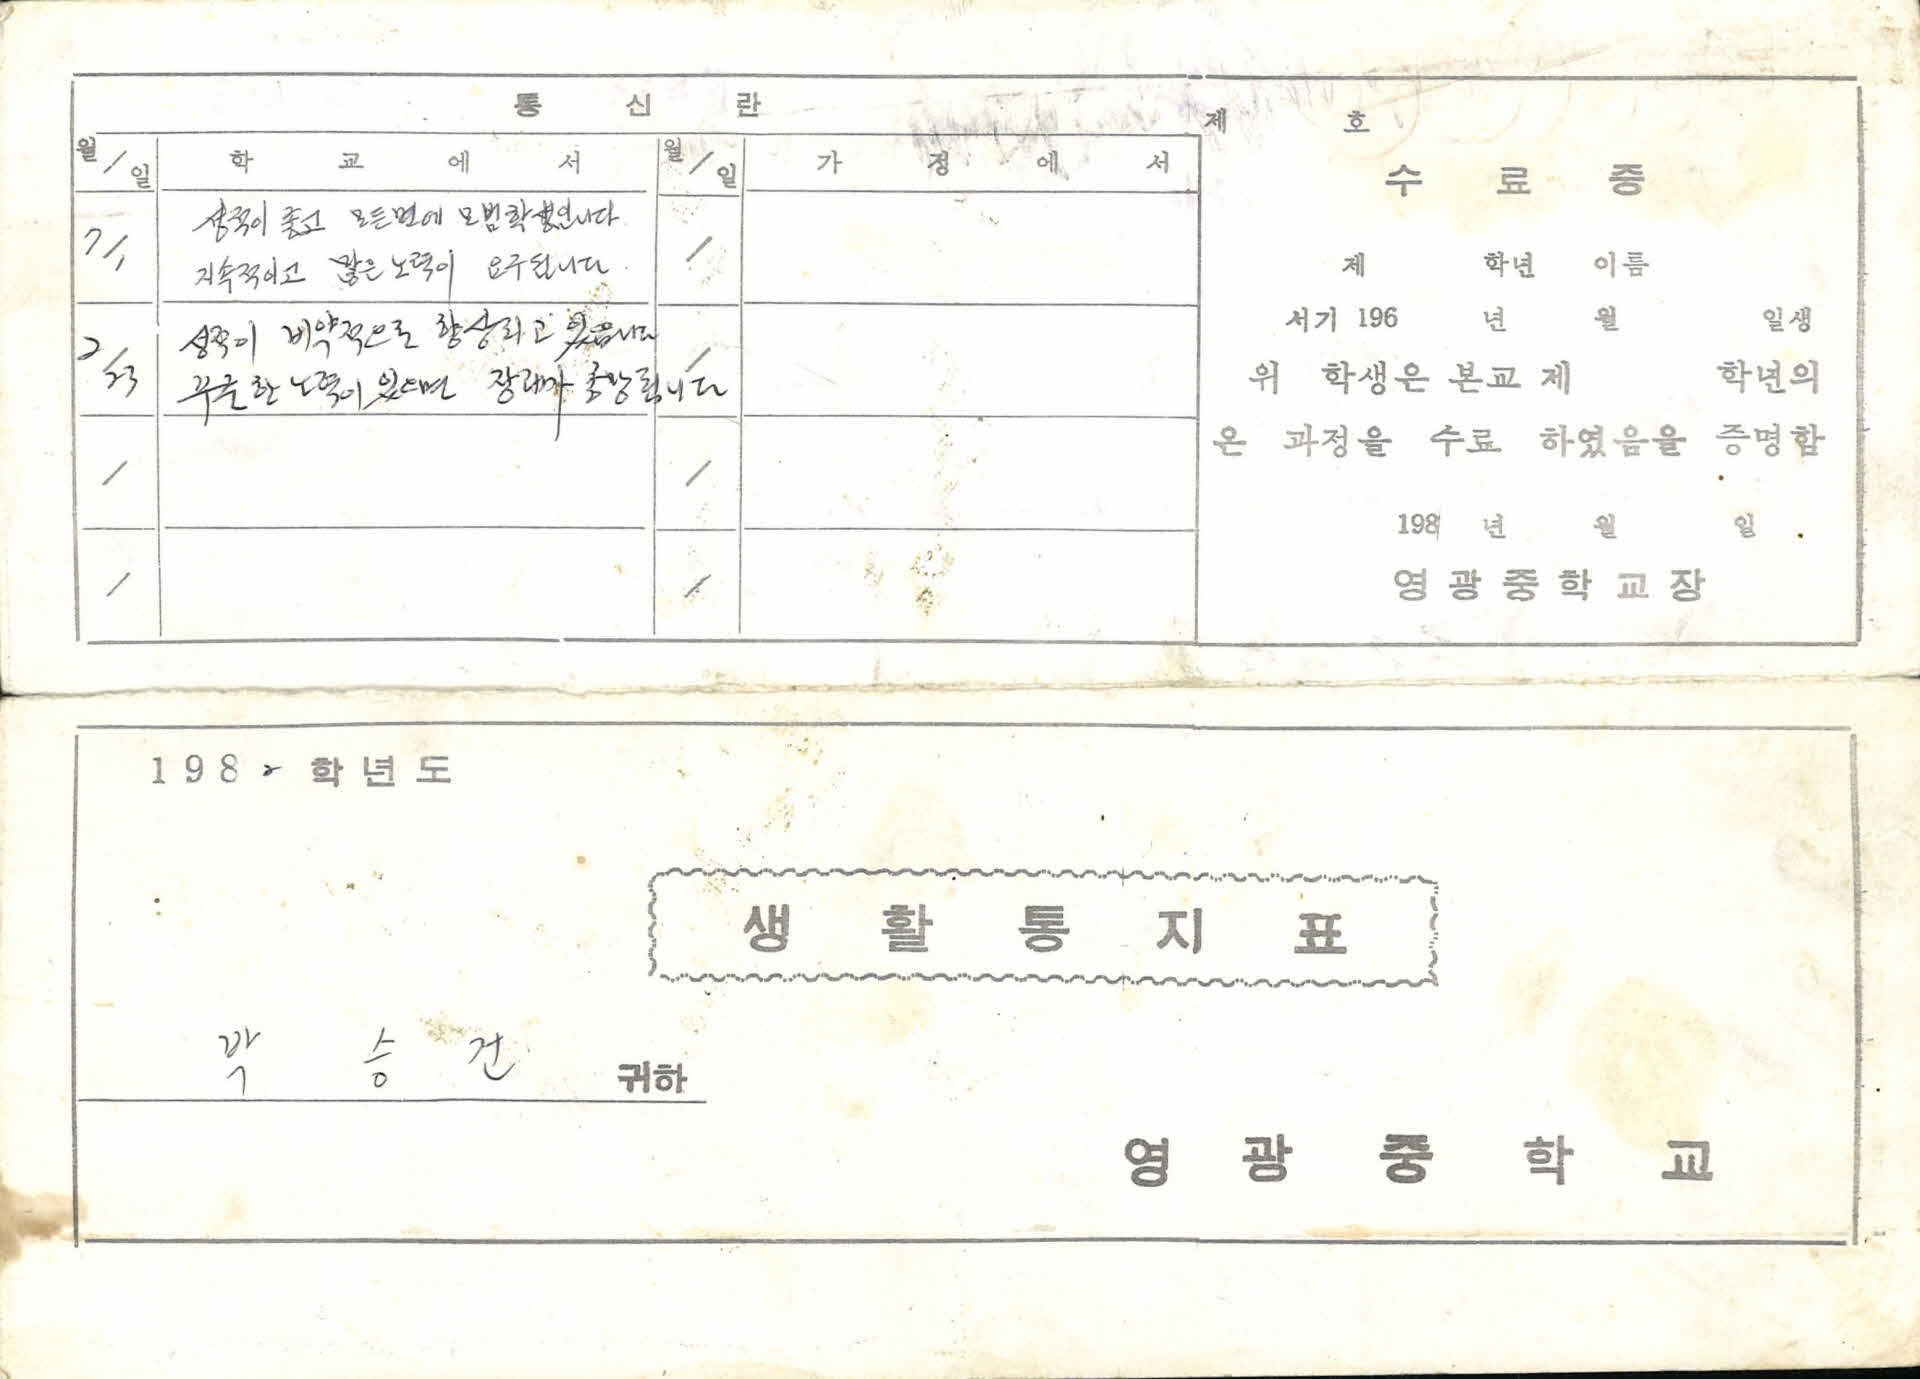 통 신 란
월/일 학 교 에 서 월/일 가 정 에 서
7/1 성적이 좋고 모든면에 모범학생입니다 /
지속적이고 많은 노력이 요구됩니다
2/23 성적이 비약적으로 향상되고 있습니다 /
꾸준한 노력이 있으면 장래가 촉망됩니다
/ /
/ /
제 호
수 료 증
제 학년 이름
서기 196 년 월 일생
위 학생은 본교 제 학년의
온 과정을 수료 하였음을 증명함
198 년 월 일
영 광 중 학 교 장
1982 학 년 도
생 활 통 지 표
박 승 건 귀하
영 광 중 학 교